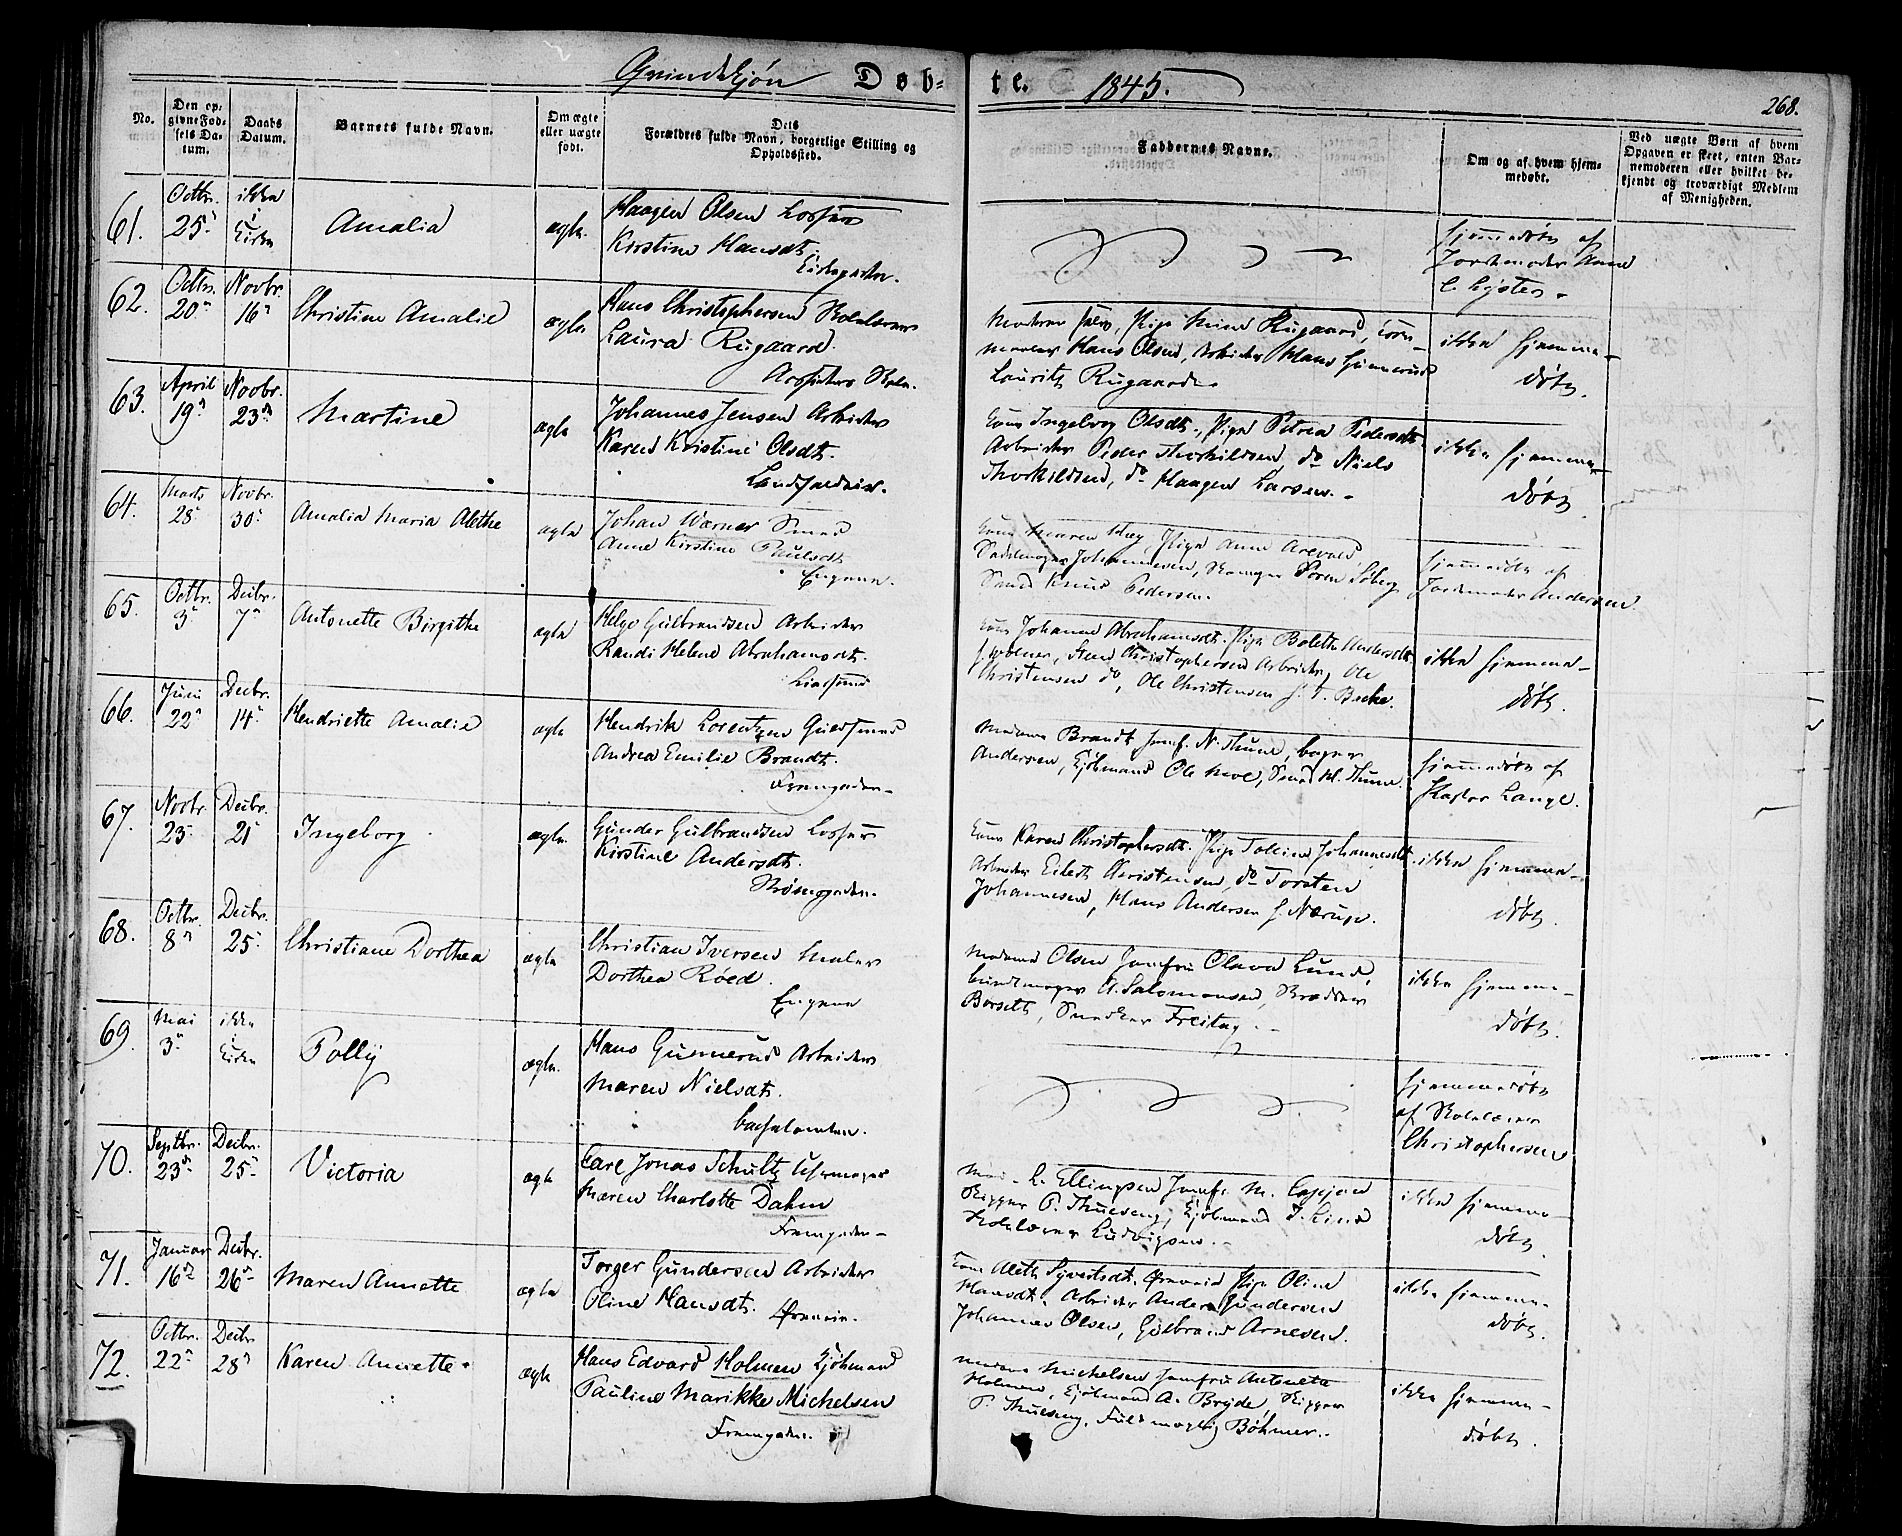 Qvindekjön Døb- te. 1845.
268.
No.
Den op-
givne Fød-
sels Da-
tum.
Daabs
Datum.
Barnets fulde Navn.
Om ægte
eller uægte
født.
Dets
Forældres fulde Navn, borgerlige Stilling og
Opholdssted.
Faddernes Navne.
Om og af hvem hjem-
medøbt.
Ved uægte Børn af hvem
Opgaven er skeet, enten Bar-
nemoderen eller hvilket be-
kjendt og troværdigt Medlem
af Menigheden.
61. Octbr. 25 ikke i Kirken Amalia ægte
Haagen Olsen
Kirstine Hansdt.
hjemmedøbt af
Jordemoder Anne
C. Lyster
62. Octbr. 20 Novbr. 16 Christine Amalie ægte
Hans Christophersen Skolelærer
Laura Rugaard
Arbeiders Skole
Moderen selv, Pige Rugaard,
Hans Olsen, Arbeider Hans Gunnerud
Lauritz Rugaard
ikke hjemme-
døbt.
63. April 19 Novbr. 23 Martine ægte
Johannes Jensen Arbeider
Karen Kristine Olsdt.
Kone Ingeborg Olsdt., Pige Petrea Pedersdt.
Arbeider Peder Thorkildsen, do Niels
Thorkildsen, do Haagen Larsen.
ikke hjemme-
døbt.
64. Marts 28 Novbr. 30 Amalia Maria Alethe ægte
Johan Warner Smed
Anne Kirstine Paulsdt.
Engene.
Kone Maren, Pige Anne
Sadelmager Johannesen, Søren Søberg
Smed Knud Pedersen.
hjemmedøbt af
Jordemoder Andersen.
65. Octbr. 3 Decbr. 7 Antonette Birgithe ægte
Helge Gulbrandsen Arbeider
Randi Helene Abrahamsdt.
Kone Johanne Abrahamsdt. Pige Bolette Andersdt.
Christophersen Arbeider, Ole
Christensen do, Ole Christensen
ikke hjemme-
døbt.
66. Juni 22 Decbr. 14 Hendriette Amalie ægte
Hendrik Lorentzen Guldsmed
Andrea Emilie Brandt.
Fremgaden
Madame Brandt Jomf. N. Thune, bager
Andersen, Kjøbmand Ole Moe, Smed M. Thune.
hjemmedøbt af
Pastor Lange.
67. Novbr. 23 Decbr. 21 Ingeborg ægte
Gunder Gulbrandsen
Kirstine Andersdt.
Strømsgaden.
Kone Karen Christophersdt. Pige Tolline Johannesdt.
Arbeider Eilert Kristensen, do Torsten
Johannesen, Hans Andersen
ikke hjemme-
døbt.
68. Octbr. 8 Decbr. 25 Christiane Dorthea ægte
Christian Iversen Maler
Dorthea Röed.
Engene
Madame Olsen Jomfru Olava Lund,
Buntmager A. Salomonsen, Skrædder
Borseth, Snedker Freitag.
ikke hjemme-
døbt.
69. Mai 3 ikke i Kirken Polly ægte
Hans Gunnerud Arbeider
Maren Nielsdt.
hjemmedøbt
af Skolelærer
Christophersen
70. Septbr. 23 Decbr. 25 Victoria ægte
Carl Jonas Schultz Uhrmager
Maren Charlotte Dahm
Fremgaden
Mad. L. Ellingsen Jomfr. M.
Rigger P. Thuesen, Kjøbmand J. Lind
Skolelærer Ludvigsen.
ikke hjemme-
døbt.
71. Januar 16 Decbr. 26 Maren Annette ægte
Torger Gundersen Arbeider
Oline Hansdt.
Kone Aleth Syvertsdt. Pige Oline
Hansdt. Arbeider Anders Gundersen
Johannes Olsen, Gulbrand Arnesen.
ikke hjemme-
døbt.
72. Octbr. 22 Decbr. 28 Karen Annette ægte
Hans Edvard Holmen Kjøbmand
Pauline Marikke Michelsen
Fremgaden.
Madam Michelsen Jomfru Antonette
Holmen, Kjøbmand A. Bryde, Rigger
P. Thuesen, Fuldmægtig Böhmer.
ikke hjemme-
døbt.